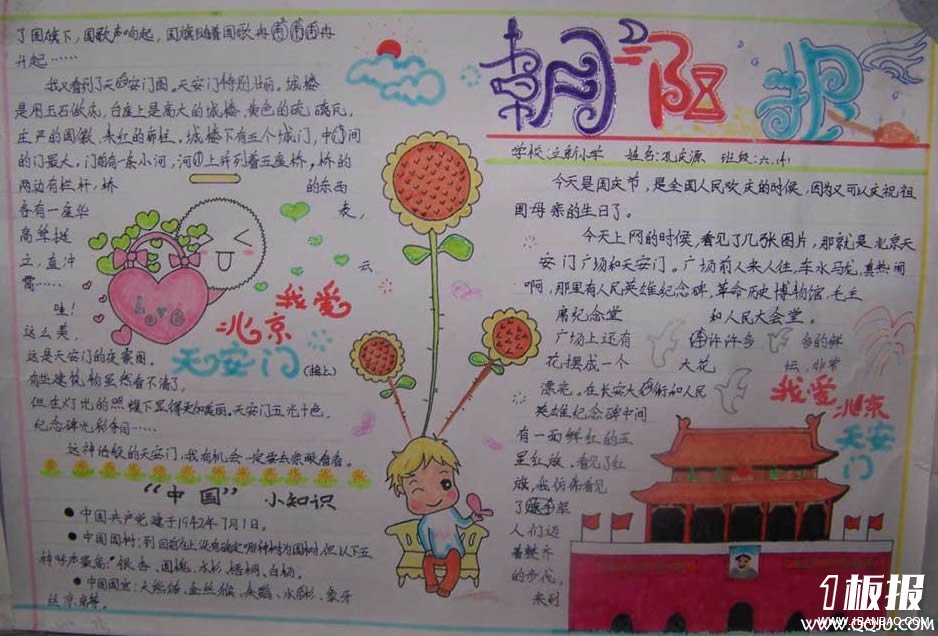 朝阳报
学校:立新小学 姓名:孔庆源 班级:六.
今天是国庆节,是全国人民欢庆的时候,因为又可以庆祝祖
国母亲的生日了。
今天上网的时候,看见了几张图片,那就是北京天
安门广场和天安门。广场前人来人往,车水马龙,真热闹
啊,那里有人民英雄纪念碑,革命历史博物馆,毛主
席纪念堂 和人民大会堂。
广场上还有 许许多 多的鲜
花摆成一个 大花 坛,非常
漂亮。在长安大街和人民
英雄纪念碑中间
有一面鲜红的五
星红旗。看见了红
旗,我仿佛看见
了 军
人们迈
着整齐
的步伐,
来到
我爱
北京
天安
门
了国旗下,国歌声响起,国旗随着国歌冉冉
升起……
我又看到了天安门图,天安门特别壮丽。城楼
是用玉石做底,台座上是高大的城楼,黄色的琉璃瓦,
庄严的国徽,朱红的 柱。城楼下有五个城门,中间
的门最大。门前有一条小河,河上并列着五座桥,桥的
两边有栏杆,桥 的东西
各有一座华 表,
高耸挺
立,直冲 云
霄……
哇!
这么美,
这是天安门的夜景图。
有些建筑物虽然看不清了,
但在灯光的照耀下显得更加美丽。天安门五光十色,
纪念碑光彩夺目……
这神话般的天安门,我有机会一定要去亲眼看看。
Love
我爱
北京
天安门
(接上)
“中国”小知识
●中国共产党建于1942年7月1日。
●中国国树:到目前为止没有确定哪种树为国树,但以下五
种呼声最高:银杏、国槐、水杉、梧桐、白杨。
●中国国宝:大熊猫、金丝猴、朱鹮、水杉、象牙
1板报
www.1BANBAO.COM
WWW.QQJU.COM